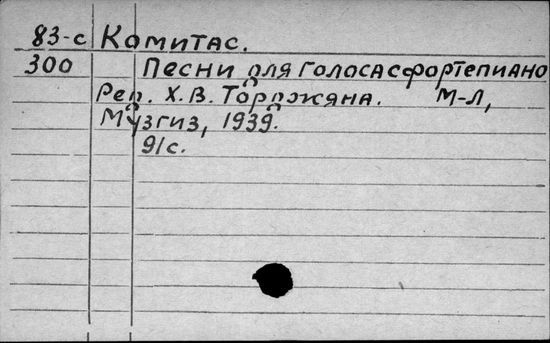 83-с Комитас.
300 Песни для голоса с фортепиано
Ред. Х.В. Торджяна. М-Л,
Музгиз, 1939.
91с.